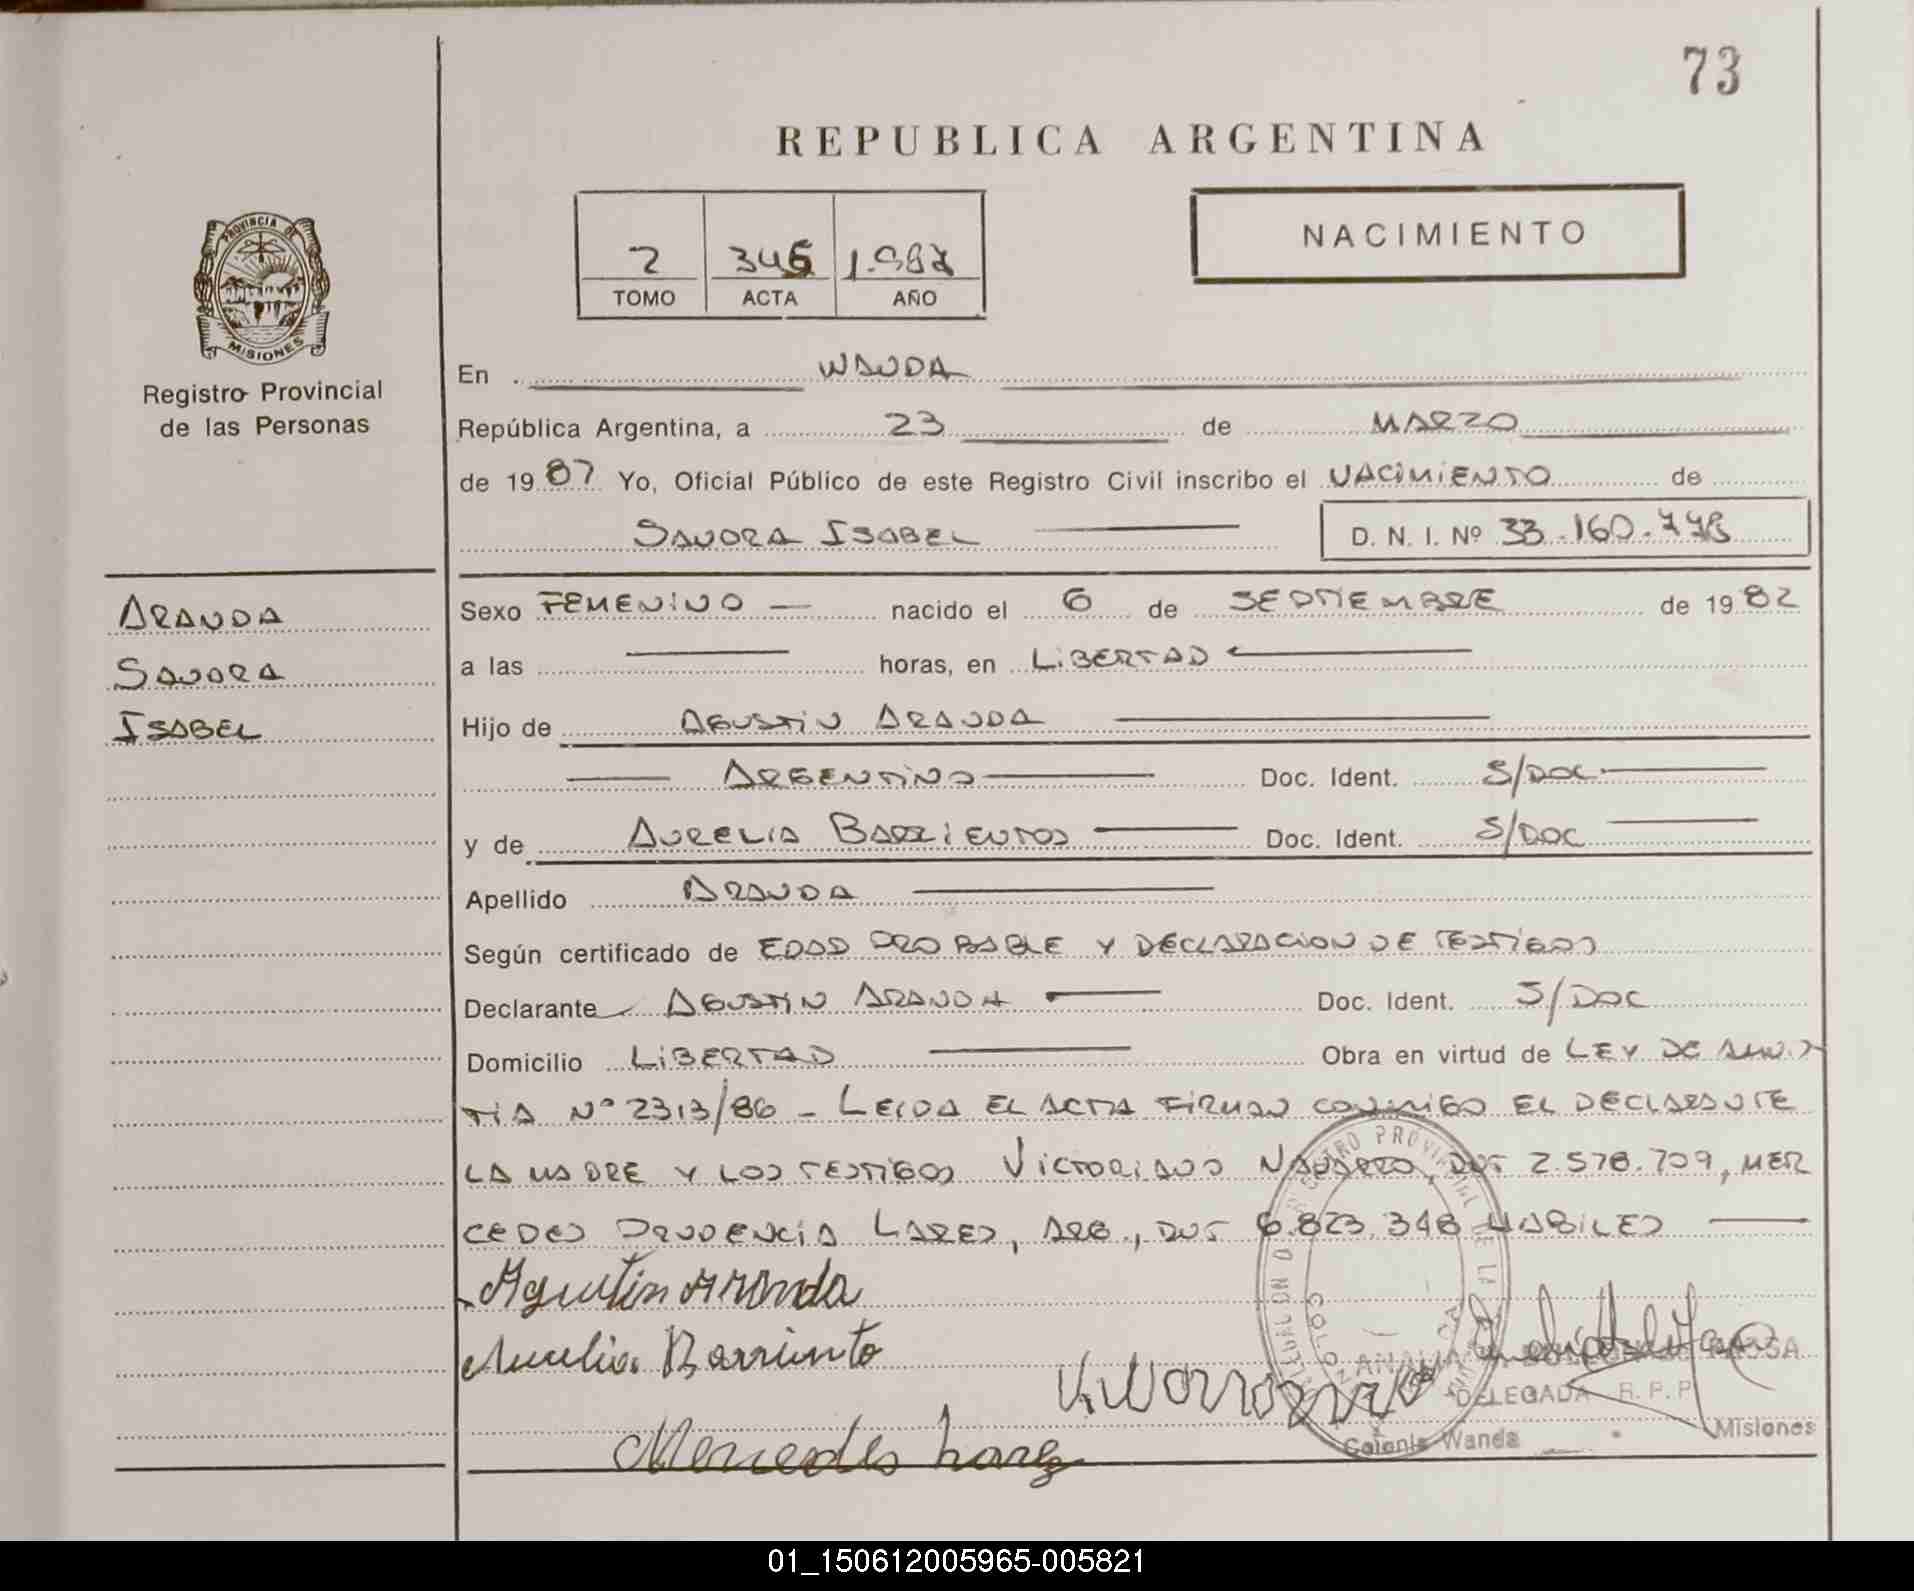 73
REPUBLICA ARGENTINA
PROVINCIA DE
MISIONES
Registro Provincial
de las Personas
2 345 1.987
TOMO ACTA AÑO
NACIMIENTO
En WANDA
República Argentina, a 23 de MARZO
de 1987 Yo, Oficial Público de este Registro Civil inscribo el NACIMIENTO de
SANDRA ISABEL D. N. I. Nº 33.160.778
ARANDA
SANDRA
ISABEL
Sexo FEMENINO nacido el 6 de SEPTIEMBRE de 1982
a las horas, en LIBERTAD
Hijo de AGUSTIN ARANDA
ARGENTINO Doc. Ident. S/DOC
y de AURELIA BARRIENTOS Doc. Ident. S/DOC
Apellido ARANDA
Según certificado de EDAD PROBABLE Y DECLARACION DE TESTIGOS
Declarante AGUSTIN ARANDA Doc. Ident. S/DOC
Domicilio LIBERTAD Obra en virtud de LEY DE AMNIS
TIA Nº 2313/86 - LEIDA EL ACTA FIRMAN CONMIGO EL DECLARANTE
LA MADRE Y LOS TESTIGOS VICTORIANO NAVARRO, DNI 2.578.709, MER
CEDES PRUDENCIA LARES, ARG., DNI 6.823.348 HABILES
Agustin Aranda
Aurelia Barriento
V. Navarro
Mercedes Lares
DELEGADA R.P.P
Colonia Wanda Misiones
01_150612005965-005821